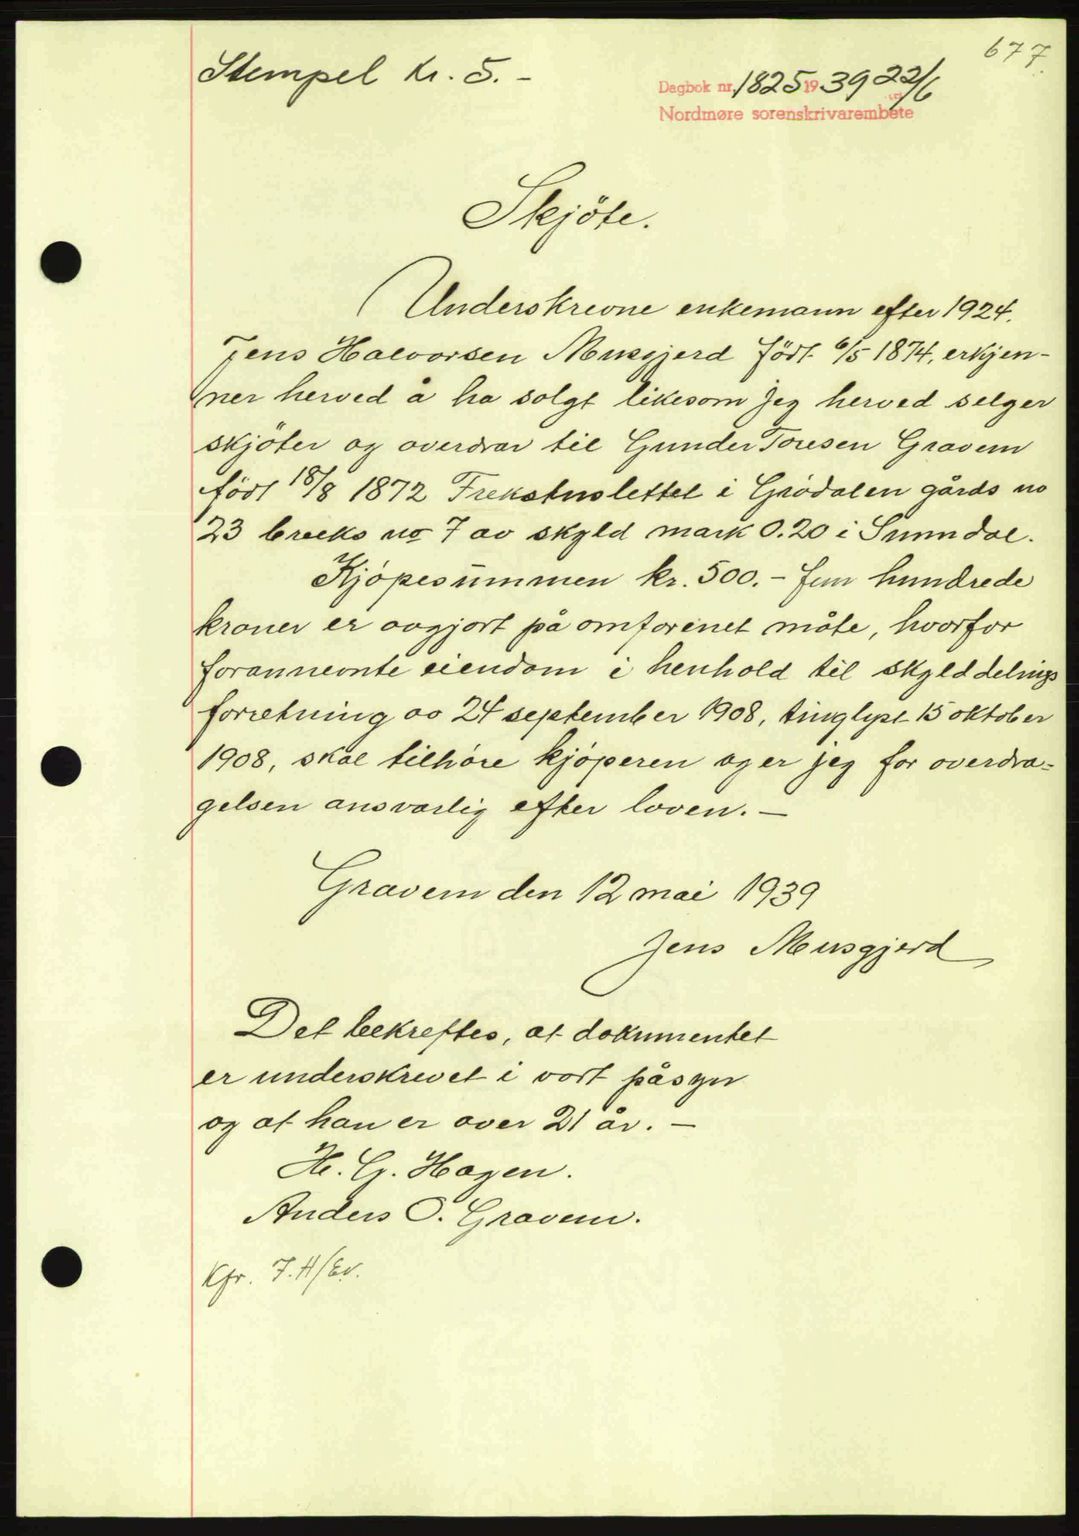 677
Stempel kr. 5. -
Dagbok nr. 1825 1939 22/6
Nordmøre sorenskrivarembete
Skjöte.
Underskrevne enkemann efter 1924.
Jens Halvorsen Musgjerd født 6/5 1874, erkjen-
ner herved å ha solgt likesom jeg herved selger
skjöter og overdrar til Gunder Toresen Gravem
født 18/8 1872 Frekstuslettet i Grödalen gårds no
23 bruks no 7 av skyld mark 0.20 i Sunndal.
Kjøpesummen kr. 500. - fem hundrede
kroner er avgjort på omforenet måte, hvorfor
forannevnte eiendom i henhold til skylddelings
forretning av 24 september 1908, tinglyst 15 oktober
1908, skal tilhøre kjøperen og er jeg for overdra=
gelsen ansvarlig efter loven. -
Gravem den 12 mai 1939
Jens Musgjerd
Det bekreftes, at dokumentet
er underskrevet i vort påsyn
og at han er over 21 år. -
H. G. Hagen.
Anders O. Gravem.
Kfr. J.H/Ev.